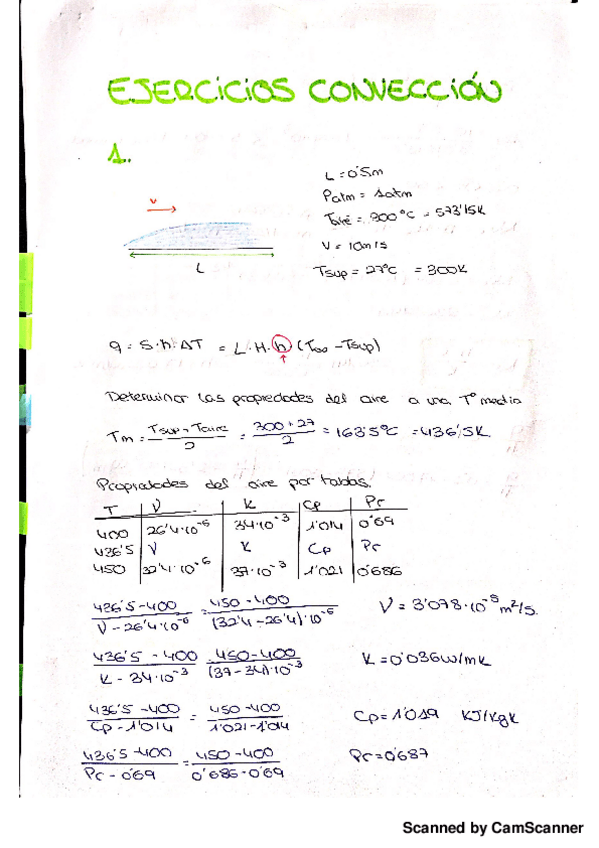 EJERCICIOS CONVECCIÓN
1..
V
L
L = 0'5m
Patm = 1atm
Taire = 300°C = 573'15K
V = 10m/s
Tsup = 27°C = 300K
q = S·h·ΔT = L·H·h (T∞ - Tsup)
Determinar las propiedades del aire a una Tº media
Tm = Tsup + Taire / 2 = 300 + 27 / 2 = 163'5°C = 436'5K
Propiedades del aire por tablas.
T V K Cp Pr
400 26'4·10⁻⁶ 34·10⁻³ 1'014 0'69
436'5 V K Cp Pr
450 32'4·10⁻⁶ 37·10⁻³ 1'021 0'686
436'5-400 / V-26'4·10⁻⁶ = 450-400 / (32'4-26'4)·10⁻⁶ V = 3'078·10⁻⁵ m²/s.
436'5-400 / K-34·10⁻³ = 450-400 / (37-34)·10⁻³ K = 0'036W/mK
436'5-400 / Cp-1'014 = 450-400 / 1'021-1'014 Cp = 1'019 KJ/KgK
436'5-400 / Pr-0'69 = 450-400 / 0'686-0'69 Pr = 0'687
Scanned by CamScanner